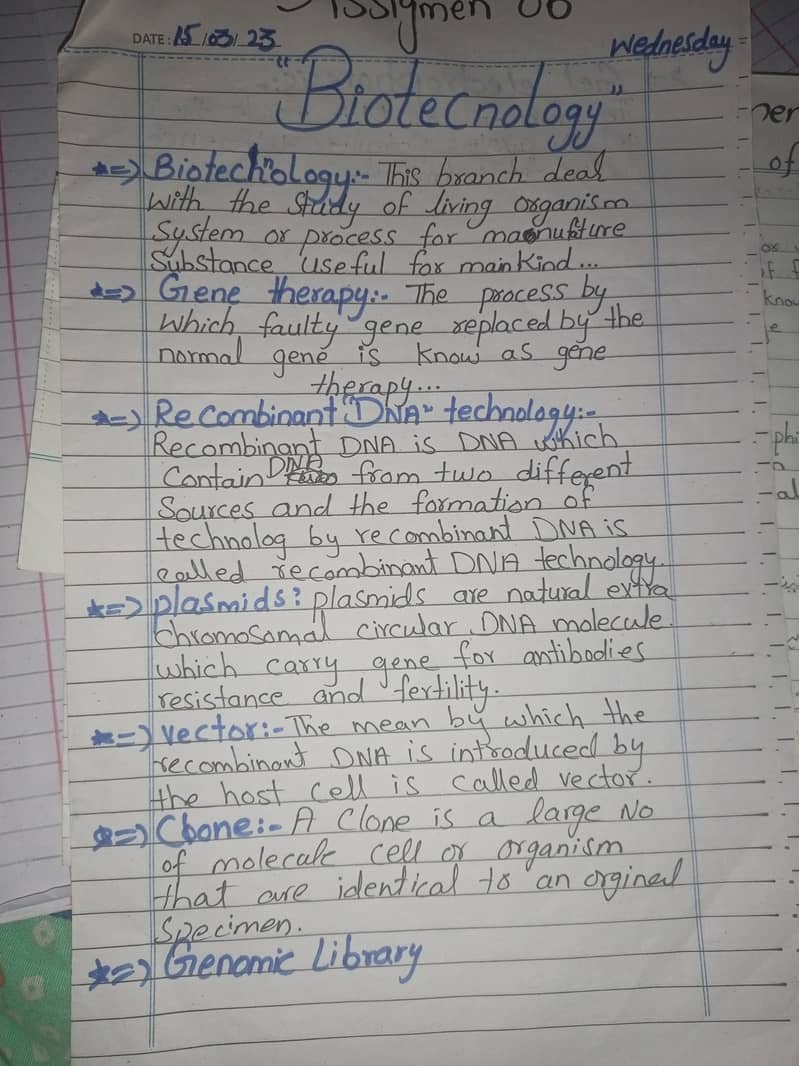 Assigmen 06
DATE: 15/03/23
Wednesday
"Biotecnology"
*=> Biotechnology:- This branch deal
with the study of living organism
System or process for manufture
Substance useful for mainkind...
*=> Gene therapy:- The process by
which faulty gene replaced by the
normal gene is know as gene
therapy...
*=> Recombinant "DNA" technology:-
Recombinant DNA is DNA which
Contain DNA from two different
Sources and the formation of
technolog by recombinant DNA is
called recombinant DNA technology.
*=> plasmids: plasmids are natural extra
Chromosomal circular DNA molecule.
which carry gene for antibodies
resistance and fertility.
*=> vector:- The mean by which the
recombinant DNA is introduced by
the host cell is called vector.
*=> Cbone:- A Clone is a large No
of molecule cell or organism
that are identical to an orginal
Specimen.
*=> Genomic Library
of
know
phi
al